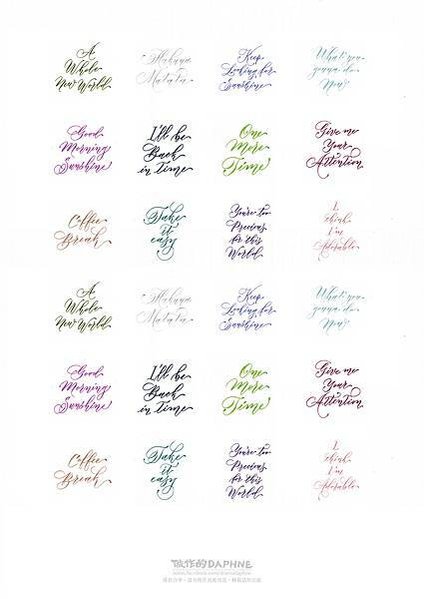 A
Whole
New World
Hakuna
Matata
Keep
Looking for
Sunshine
What'you
gonna do
Now?
Good
Morning
Sunshine
I'll be
Back
in time
One
More
Time
Give me
Your
Attention
Coffee
Break
Take
it
easy
You're too
Precious
for this
World
I
think
I'm
Adorable
A
Whole
New World
Hakuna
Matata
Keep
Looking for
Sunshine
What'you
gonna do
Now?
Good
Morning
Sunshine
I'll be
Back
in time
One
More
Time
Give me
Your
Attention
Coffee
Break
Take
it
easy
You're too
Precious
for this
World
I
think
I'm
Adorable
做作的DAPHNE